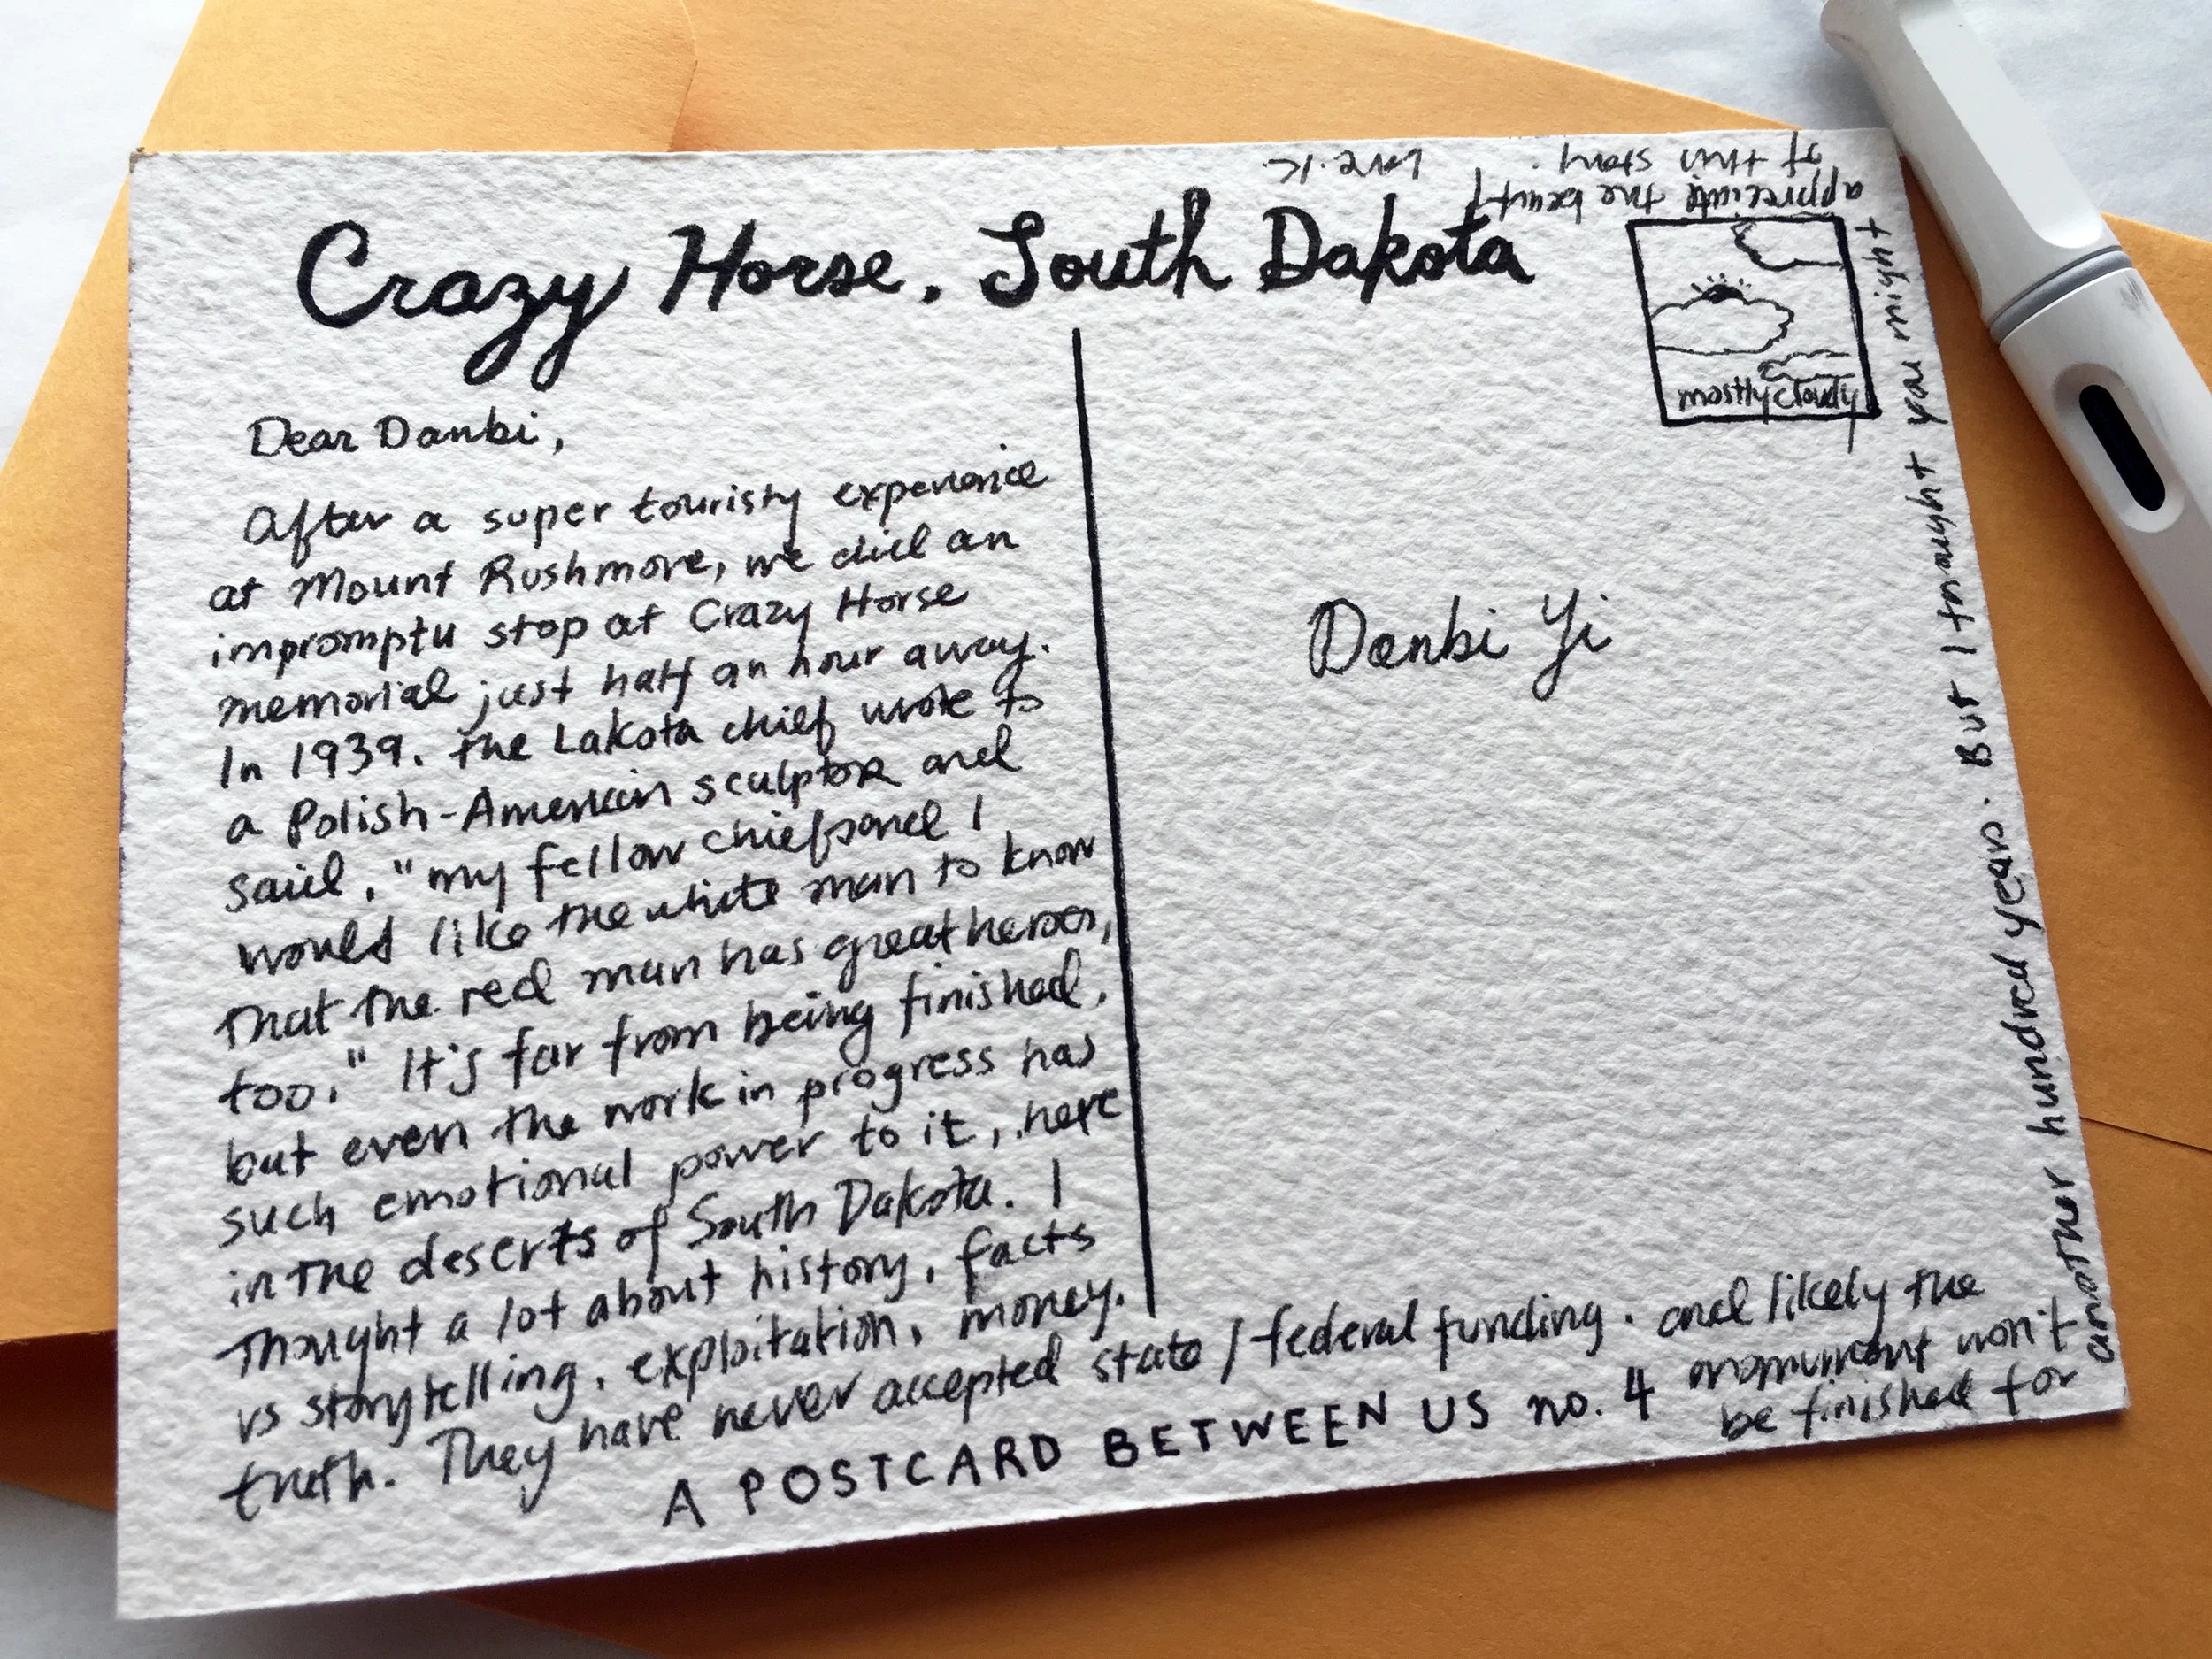 Crazy Horse, South Dakota
Dear Danbi,
After a super touristy experience
at Mount Rushmore, we did an
impromptu stop at Crazy Horse
memorial just half an hour away.
In 1939. the Lakota chief wrote to
a Polish-American sculptor and
said, "my fellow chiefs and I
would like the white man to know
that the red man has great heroes,
too." It's far from being finished,
but even the work in progress has
such emotional power to it, here
in the deserts of South Dakota. I
thought a lot about history, facts
vs storytelling, exploitation, money.
truth. They have never accepted state / federal funding. and likely the
monument won't
be finished for
another hundred years. But I thought you might
appreciate the beauty
of this story. Love. K.
mostly cloudy
Danbi Yi
A POSTCARD BETWEEN US no. 4